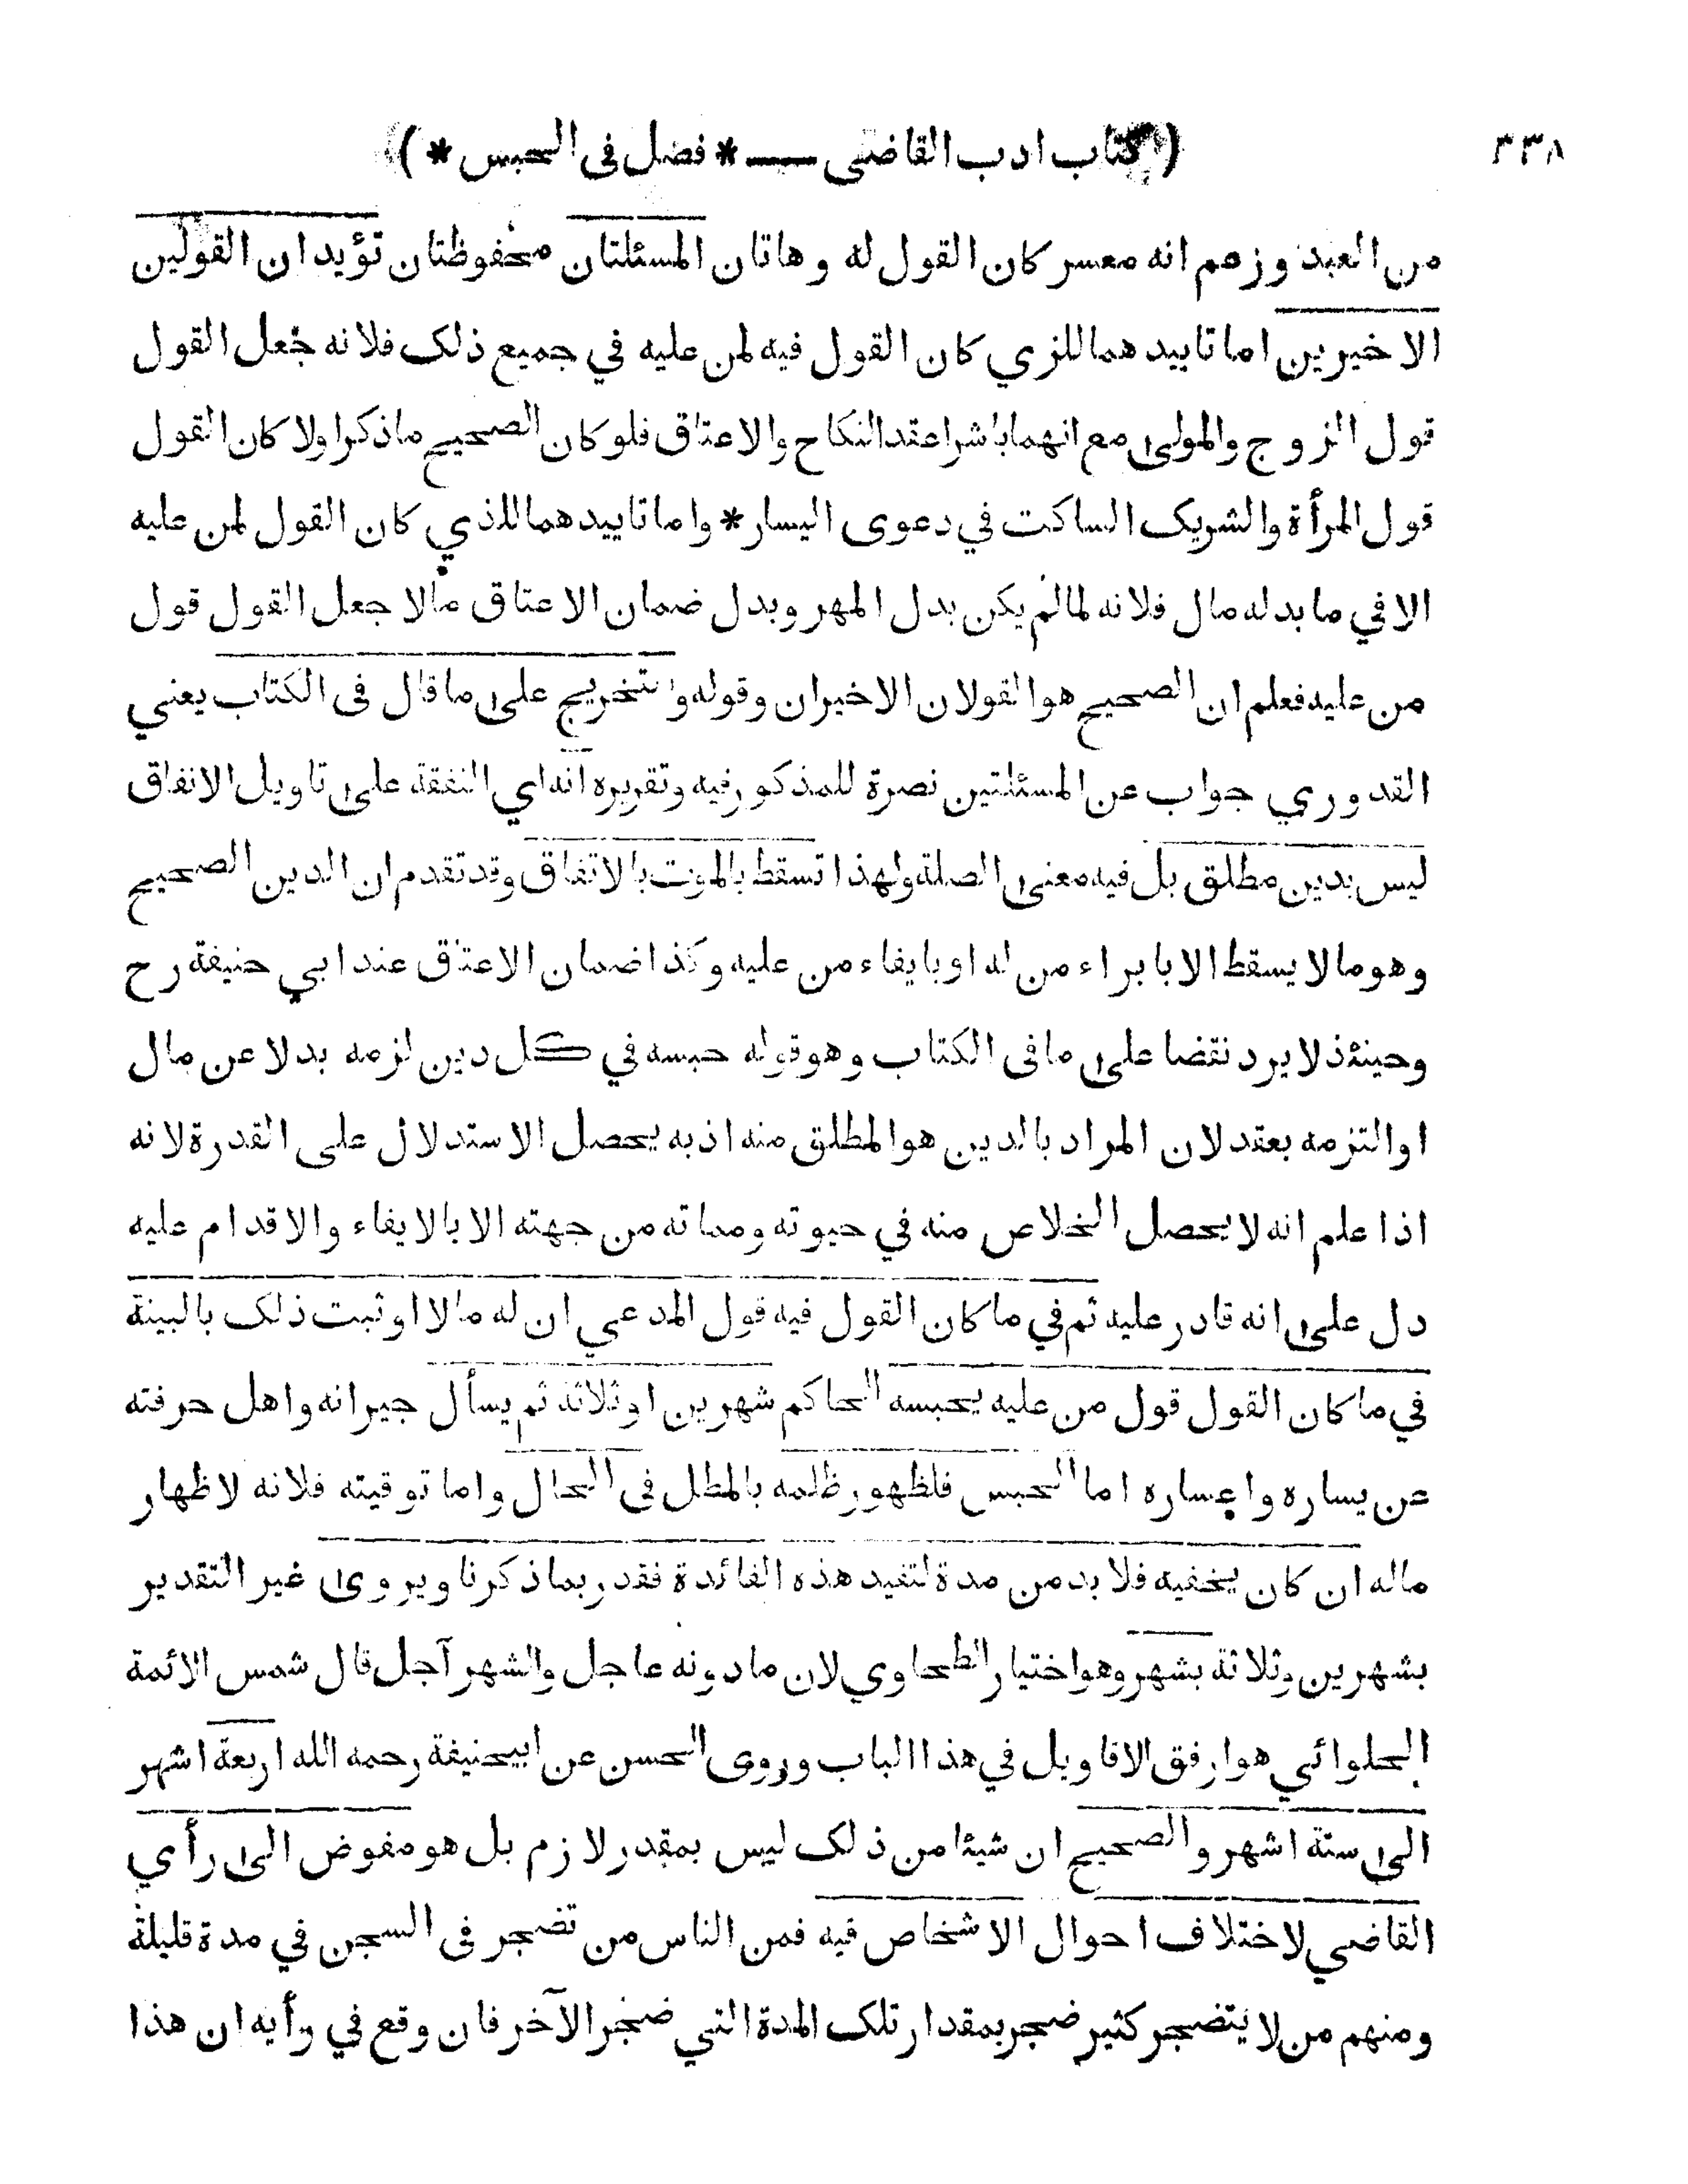 ٣٣٨
( كتاب ادب القاضى — * فصل فى الحبس * )
من العبد وزعم انه معسر كان القول له وهاتان المسئلتان محفوظتان تؤيدان القولين
الاخيرين اما تاييدهما للزي كان القول فيه لمن عليه في جميع ذلك فلانه جعل القول
قول الزوج والمولى مع انهما باشرا عقد النكاح والاعتاق فلو كان الصحيح ما ذكر اولا كان القول
قول المرأة والشريك الساكت في دعوى اليسار * واما تاييدهما للذي كان القول لمن عليه
الا في ما بدله مال فلانه لما لم يكن بدل المهر وبدل ضمان الاعتاق مالا جعل القول قول
من عليه فعلم ان الصحيح هو القولان الاخيران وقوله والتخريج على ما قال فى الكتاب يعني
القدوري جواب عن المسئلتين نصرة للمذكور فيه وتقريره انه اي النفقة على تاويل الانفاق
ليس بدين مطلق بل فيه معنى الصلة ولهذا تسقط بالموت بالاتفاق وقد تقدم ان الدين الصحيح
وهو ما لا يسقط الا بابراء من له او بايفاء من عليه وكذا ضمان الاعتاق عند ابي حنيفة رح
وحينئذ لا يرد نقضا على ما فى الكتاب وهو قوله حبسه في كل دين لزمه بدلا عن مال
او التزمه بعقد لان المراد بالدين هو المطلق منه اذ به يحصل الاستدلال على القدرة لانه
اذا علم انه لا يحصل الخلاص منه في حيوته ومماته من جهته الا بالايفاء والاقدام عليه
دل على انه قادر عليه ثم في ما كان القول فيه قول المدعي ان له مالا او ثبت ذلك بالبينة
في ما كان القول قول من عليه يحبسه الحاكم شهرين او ثلاثة ثم يسأل جيرانه واهل حرفته
عن يساره واعساره اما الحبس فلظهور ظلمه بالمطل فى الحال واما توقيته فلانه لاظهار
ماله ان كان يخفيه فلا بد من مدة لتفيد هذه الفائدة فقدر بما ذكرنا ويروى غير التقدير
بشهرين وثلاثة بشهر وهو اختيار الطحاوي لان ما دونه عاجل والشهر آجل قال شمس الائمة
الحلوائي هو ارفق الاقاويل في هذا الباب وروى الحسن عن ابيحنيفة رحمه الله اربعة اشهر
الى ستة اشهر والصحيح ان شيئا من ذلك ليس بمقدر لازم بل هو مفوض الى رأي
القاضي لاختلاف احوال الاشخاص فيه فمن الناس من تضجر فى السجن في مدة قليلة
ومنهم من لا يتضجر كثير ضجر بمقدار تلك المدة التي ضجر الآخر فان وقع في رأيه ان هذا